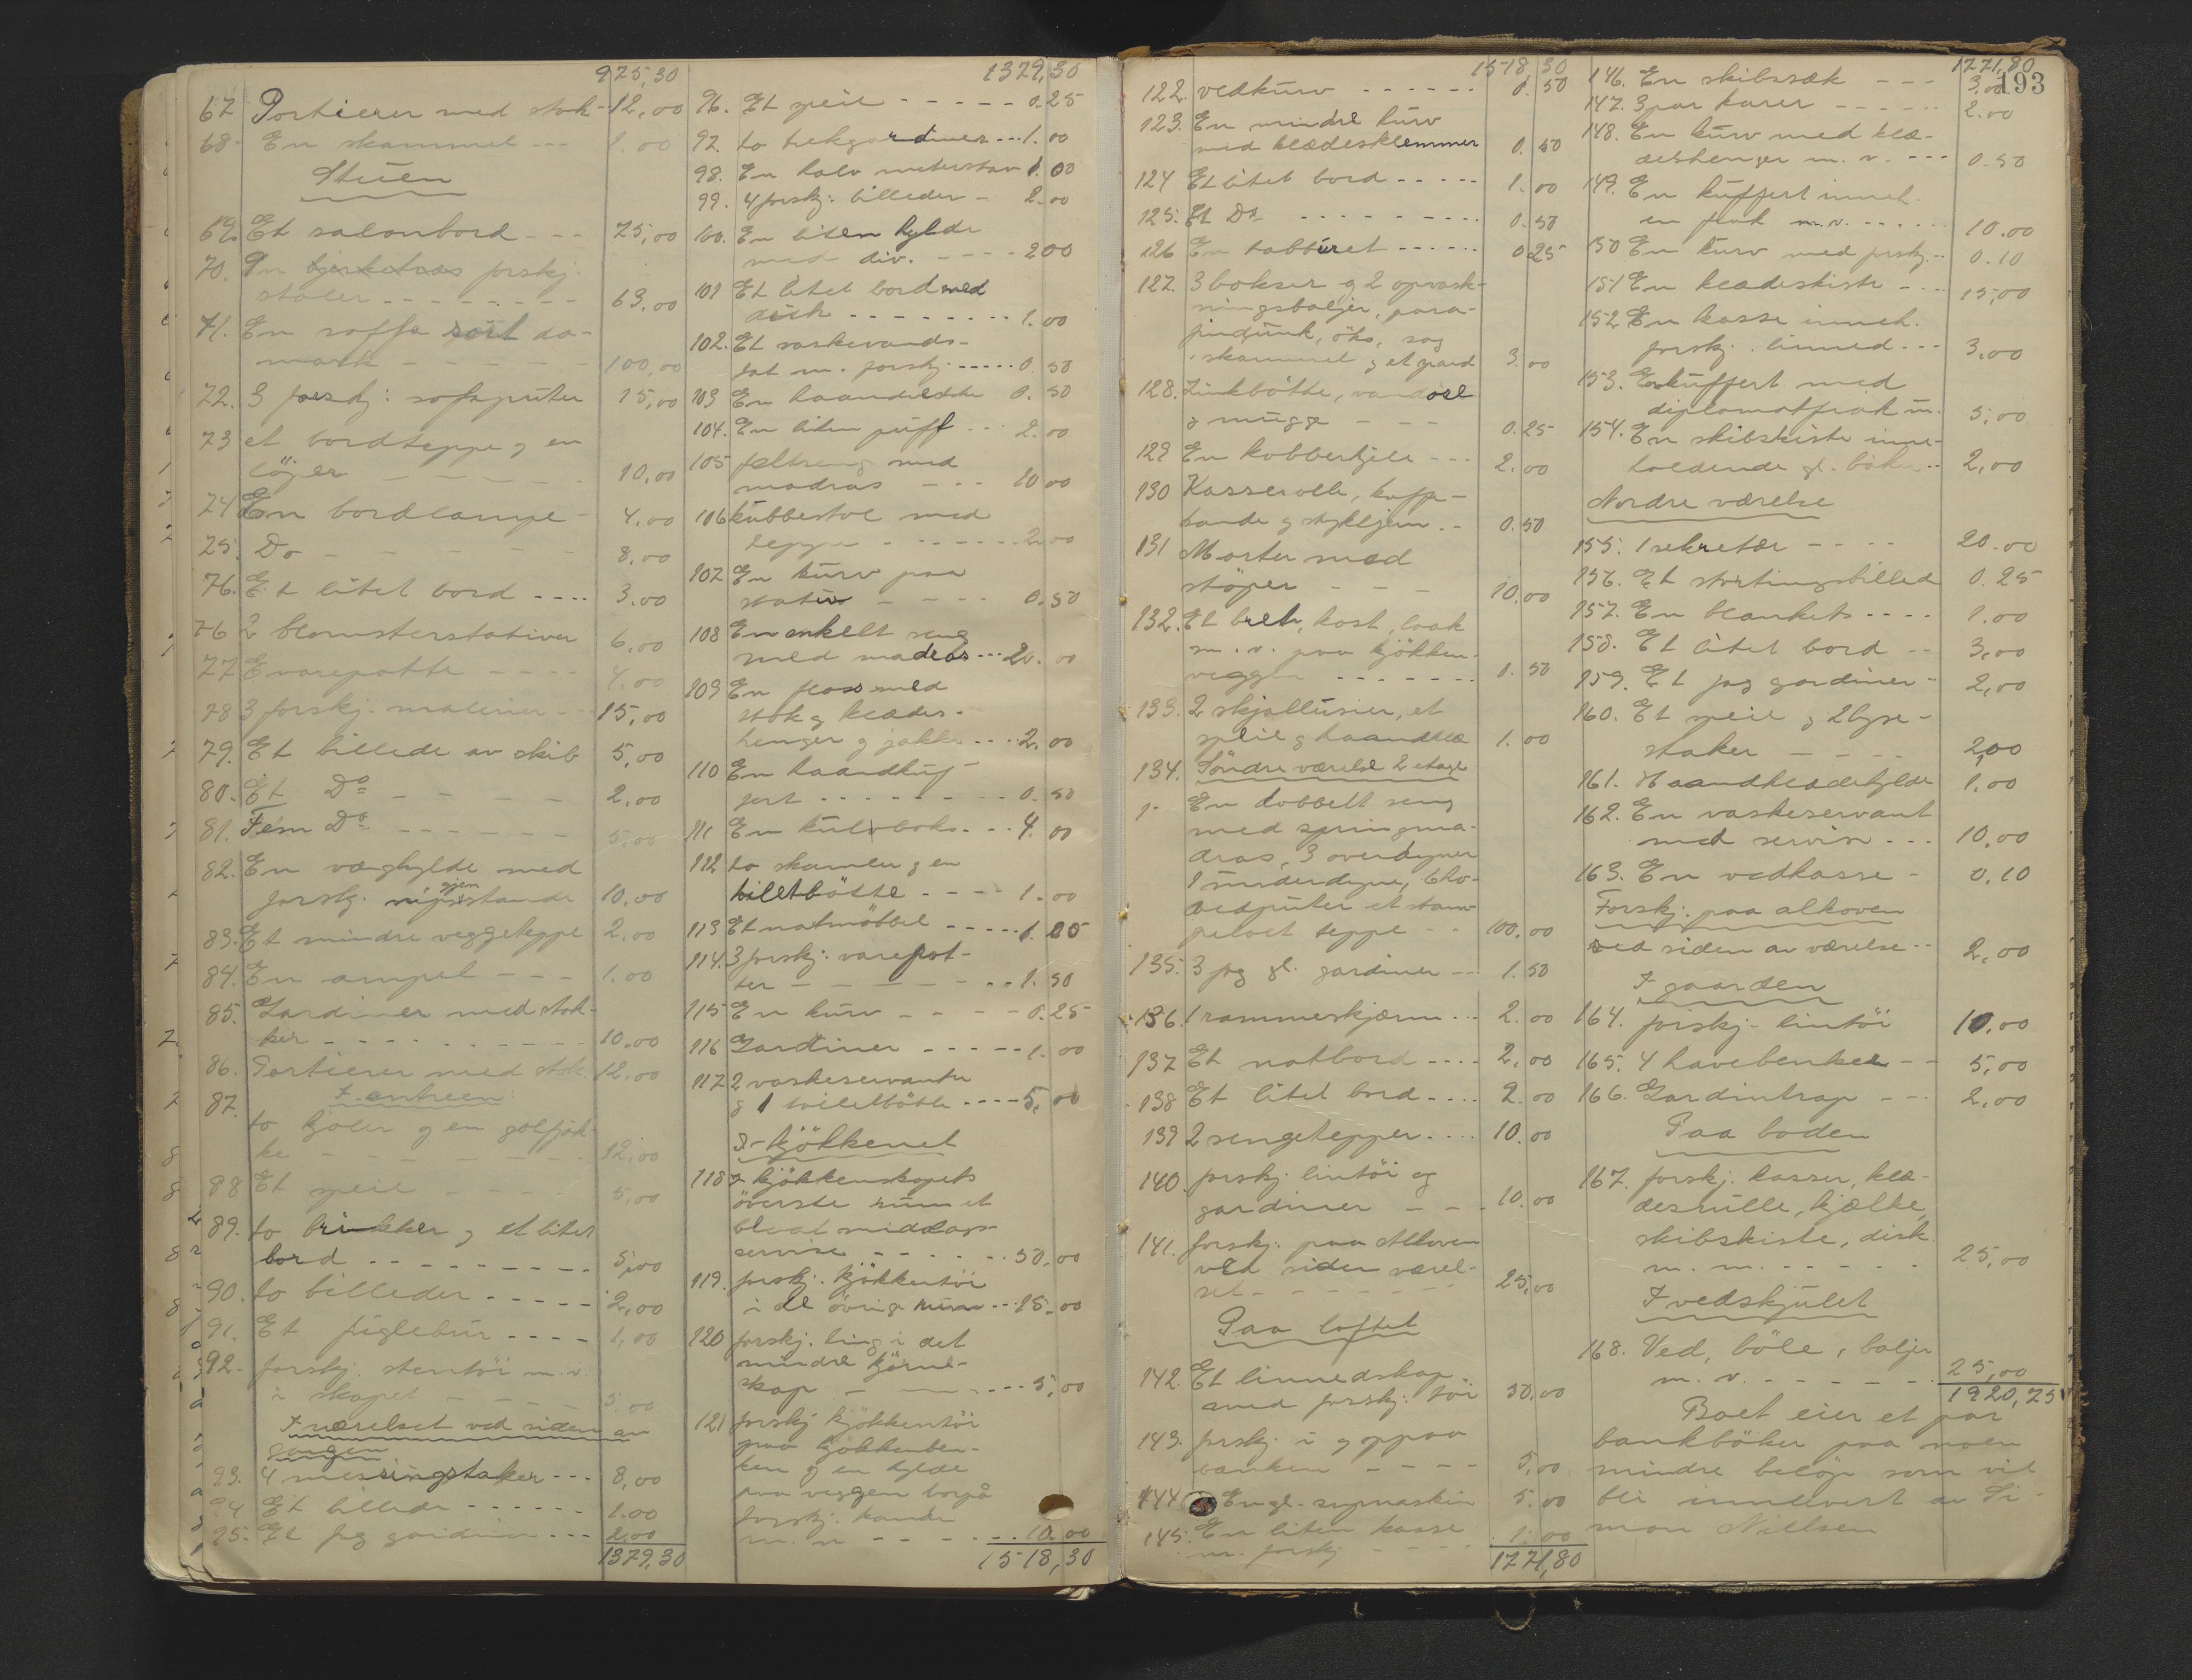 975,30
67 Portierer med stok - 12,00
68. En skammel --- 1.00
Stuen
69. Et salonbord --- 75,00
70. forskj.
stoler -------- 63,00
71. En soffa sort da-
mask ---- 100,00
72. 3 forskj: sofaputer 15,00
73 et bordteppe og en
löper ----- 10,00
74 En bordlampe - 4,00
75. Do ------ 8,00
76. Et litet bord ---- 3.00
76 2 blomsterstativer 6,00
77 Evarepotte ---- 4.00
78 3 forskj. malerier -- 15,00
79. Et billede av skib 5,00
80. Et Do ----- 2,00
81. Fem Do ------ 5,00
82. En væghylde med
forskj. nipsgjenstande 10,00
83. Et mindre veggeteppe 2,00
84. En ampel --- 1.00
85. Gardiner med stok-
ker ---------- 10,00
86. Portierer med stok. 12,00
I entreen
87. to kjoler og en golfjak-
ke ------- 12,00
88 Et speil ---- 5,00
89. to brikker og et litet
bord --------- 5,00
90. to billeder ----- 2,00
91. Et fuglebur ---- 1,00
92. forskj. stentöi m.v.
i skapet ---- 5.00
I værelset ved siden av
gangen
93. 4 messingstaker --- 8,00
94 Et billede ------ 1.00
95. Et fag gardiner --- 2,00
1379,30
1379,30
96. Et speil ----- 0.25
97. to trekgardiner --- 1.00
98. En halv meterstav 1.00
99. 4 forskj: billeder - 2.00
100. En liten hylde
med div. ---- 2 00
101 Et litet bord med
disk -------- 1.00
102. Et vaskevands-
fat m. forskj ----- 0.50
103 En haandveske 0.50
104. En liten puff --- 2.00
105 feltseng med
madras --- 10 00
106 kubbestol med
teppe ------- 2.00
107 En kurv paa
stativ ---- 0.50
108 En enkelt seng
med madras --- 20.00
109 En med
stok og klædes-
henger og jakke ---- 2.00
110 En haandkuf-
fert -------- 0.50
111 En kulboks --- 4.00
112 to skamler og en
toiletbötte ---- 1.00
113 Et natmöbbel ----- 1.25
114. 3 forskj: varepot-
ter -------- 1.50
115 En kurv ----- 0.25
116 Gardiner ----- 1.00
117 2 vaskeservanter
og 1 toiletbötte ---- 5.00
I kjökkenet
118 I kjökkenskapets
överste rum et
blaat middags-
servise ------ 50.00
119. forskj. kjökkentöi
i de övrige rum --- 15.00
120 forskj. ting i det
mindre hjörne-
skap ------ 5.00
121 forskj kjökkentöi
paa kjökkenben-
ken og en hylde
paa veggen
forskj. kander
m. v ------ 10.00
1518,30
1518 30
122. vedkurv ------ 0.50
123. En mindre kurv
med klædesklemmer 0.50
124 Et litet bord ----- 1.00
125. Et Do --------- 0.50
126 En tabburet ------ 0 25
127. 3 bokser og 2 opvask-
ningsbaljer, para-
findunk, öks, sag
skammel og et spand 3.00
128. Zinkbötte, vandöse
og mugge --- 0.25
129 En kobberkjele --- 2.00
130 Kasserolle, kaffe-
kande og strykejern -- 0.50
131 Morter med
stöper --- 10.00
132. Et bret, kost, laak
m. v. paa kjökken-
veggen ------- 1.50
133. 2 skjallusier, et
speil og haandklæ 1.00
134. Söndre værelse 2 etage
1- En dobbelt seng
med springma-
dras, 3 overdyner
1 underdyne, 6 ho-
vedputer et stam-
pelset teppe -- 100.00
135. 3 fag gl. gardiner --- 1.50
136. 1 rammeskjærm --- 2.00
137 Et natbord ---- 2.00
138 Et litet bord ---- 2.00
139 2 sengetepper ---- 10.00
140. forskj. lintöi og
gardiner --- 10.00
141. forskj. paa Alkoven
ved siden værel-
set ------- 25.00
Paa loftet
142. Et linnedskap
med forskj. töi 50.00
143. forskj. i og oppaa
banken ---- 5,00
144. En gl. symaskin 5.00
145. En liten kasse
m. forskj ---- 1.00
1771,80
1771,80
193
146. En skibssæk --- 3,00
147. 3 par karer ------ 2.00
148. En kurv med klæ-
deshenger m. v. --- 0.50
149. En kuffert inneh.
en frak m.v. ------ 10.00
150 En kurv med forskj. -- 0.10
151 En klædeskiste ---- 15,00
152 En kasse inneh.
forskj. linned --- 3,00
153. En kuffert med
diplomatfrak m. 5,00
154. En skibskiste inne-
holdende gl. böker -- 2,00
Nordre værelse
155. 1 sekretær ---- 20.00
156. Et stortingsbilled 0.25
157. En blankets ---- 1.00
158. Et litet bord -- 3,00
159. Et fag gardiner - 2,00
160. Et speil og 2 lyse-
staker ---- 2,00
161. Haandklædehylde 1.00
162. En vaskeservant
med servise --- 10,00
163. En vedkasse - 0.10
Forskj. paa alkoven
ved siden av værelse -- 2,00
I gaarden
164. forskj - lintöi 10,00
165. 4 havebenker -- 5,00
166. Gardintrap --- 2,00
Paa boden
167. forskj. kasser, klæ-
desrulle, kjælke,
skibskiste, disk
m. m. ------ 25,00
I vedskjulet
168. Ved, böle, baljer
m. v. ------ 25,00
1920,75
Boet eier et par
bankböker paa noen
mindre belöp som vil
bli innlevert av Si-
mon Nillsen